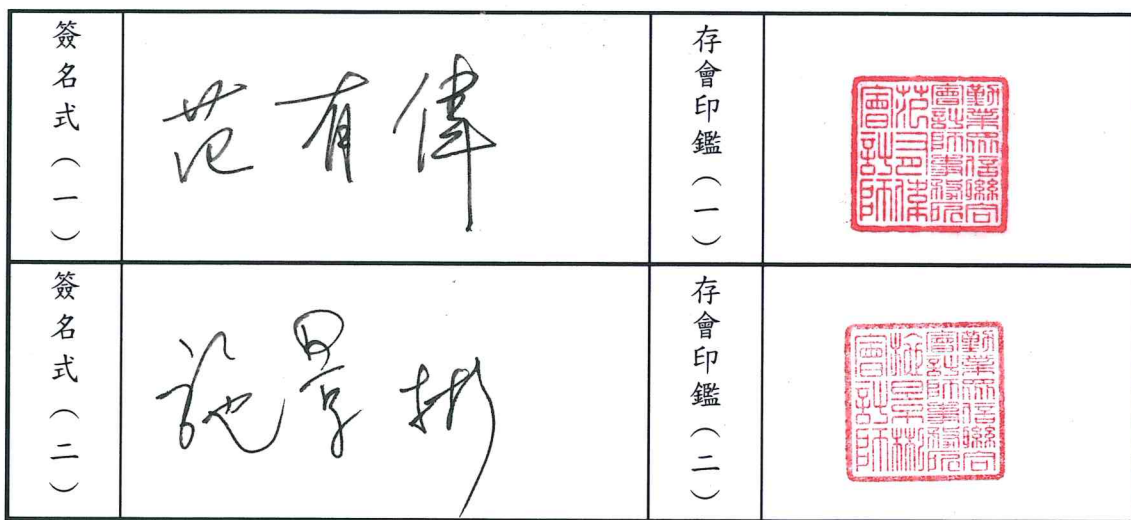 簽名式（一）
范有偉
存會印鑑（一）
勤業眾信聯合
會計師事務所
范有偉
會計師
簽名式（二）
施景彬
存會印鑑（二）
勤業眾信聯合
會計師事務所
施景彬
會計師